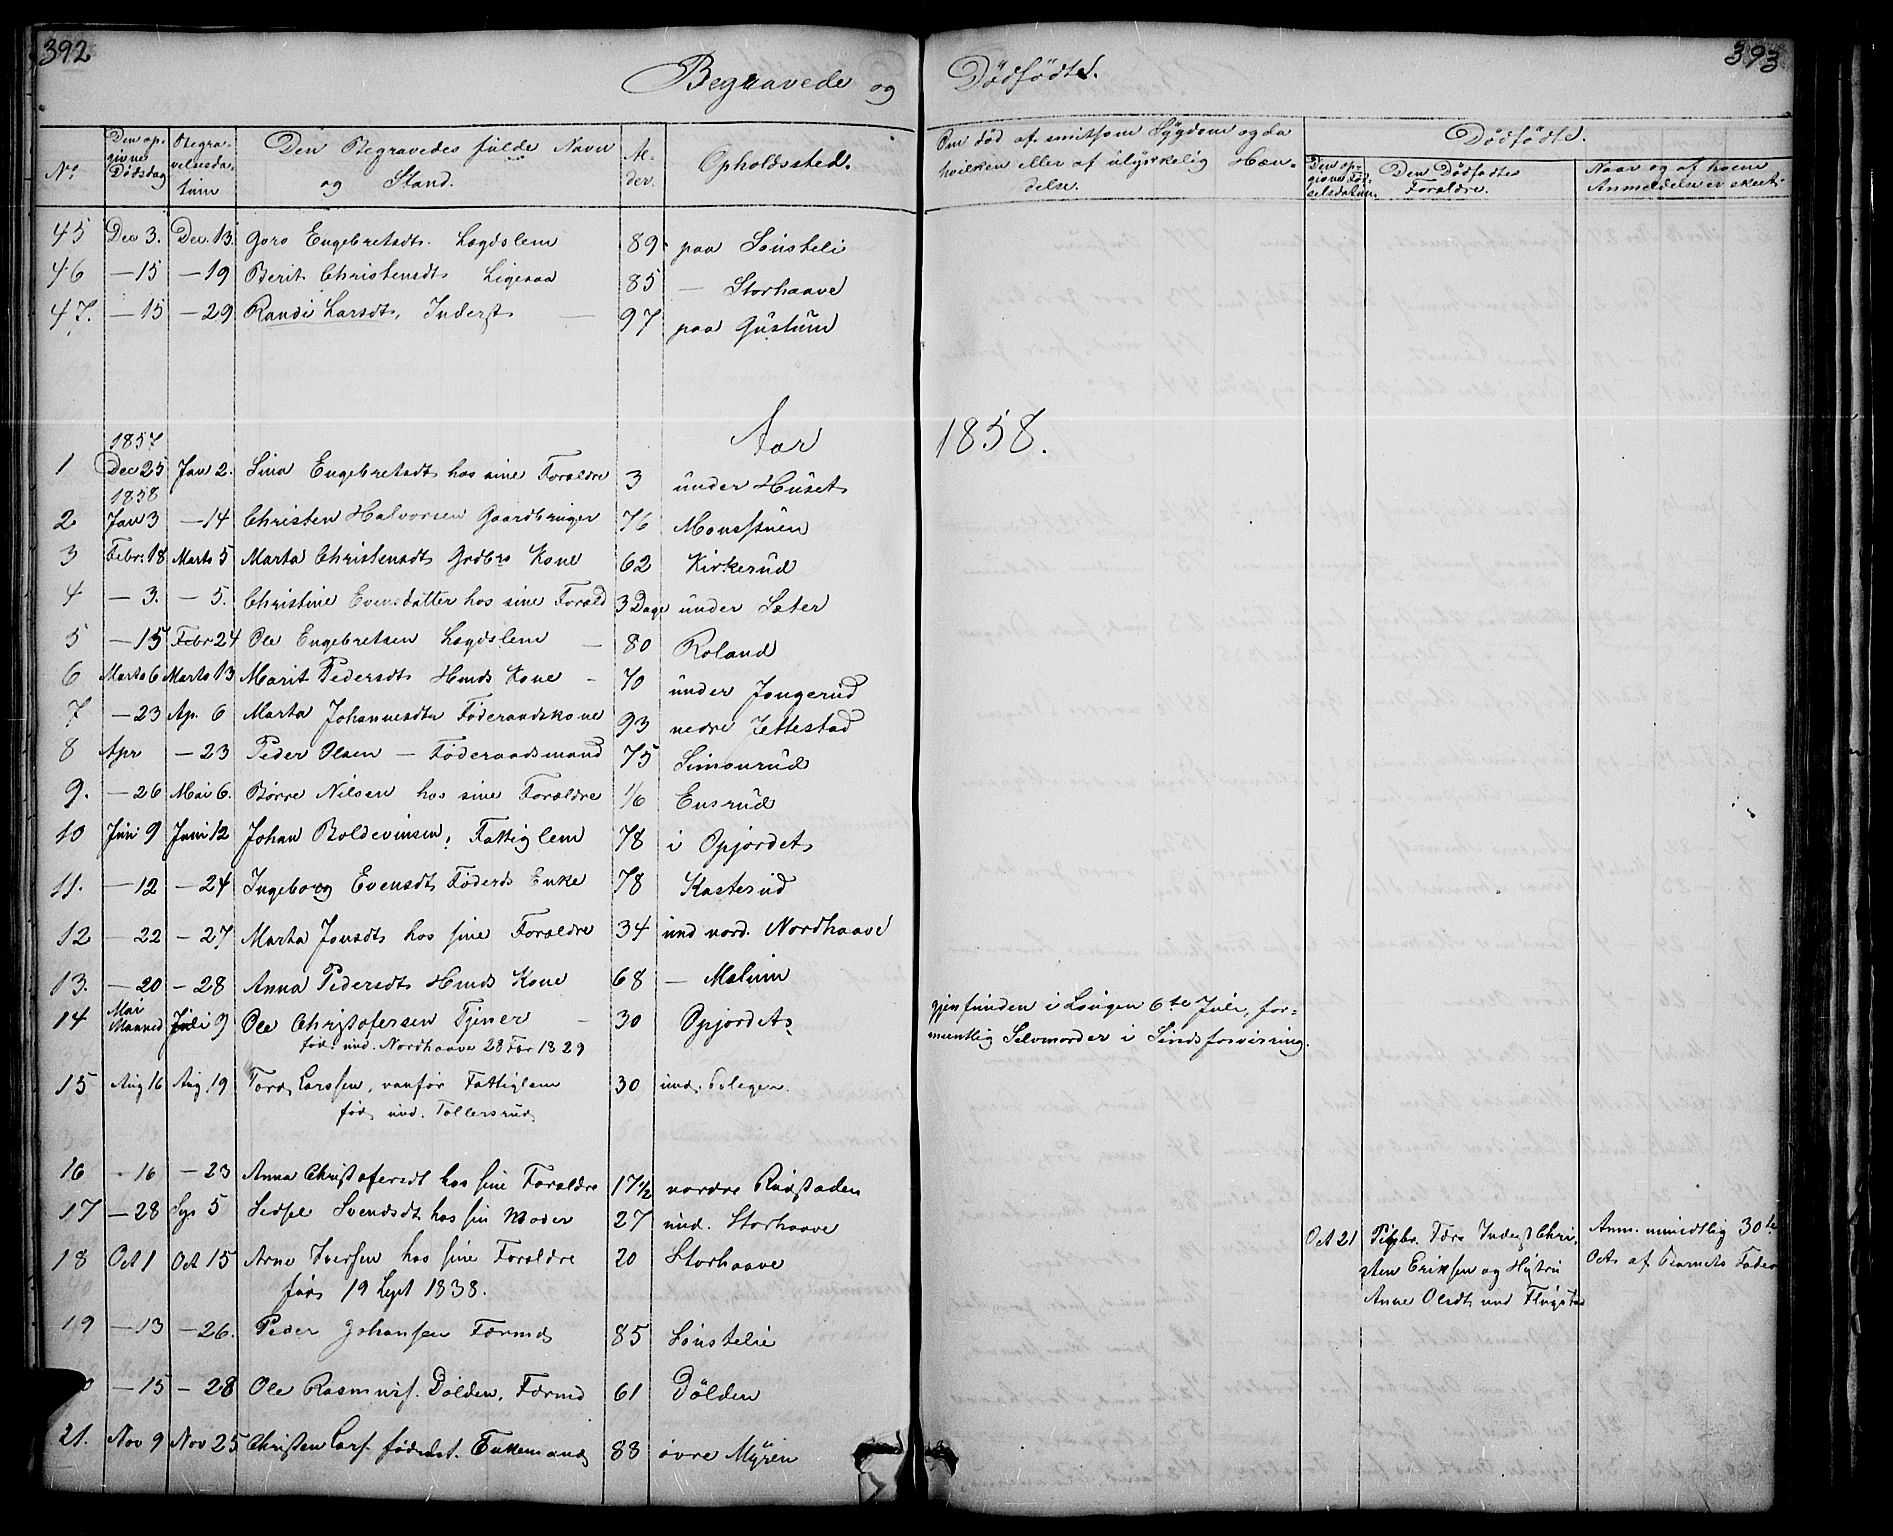 392
393
Begravede og Dödfödte.
No
Den op-
givne
Dødsdag
Begra-
velsesda-
tum
Den Begravedes fulde Navn
og Stand.
Al-
der.
Opholdssted.
Om død af smitsom Sygdom og da
hvilken eller af ulykkelig Hæn-
delse.
Dödfödte.
Den op-
givne Fød-
selsdatum.
Den Dödfødtes
Forældre.
Naar og af hvem
Anmeldelse er skeet.
45 Dec 3. Dec. 13. Goro Engebretsdt. Lægdslem 89 paa Sønsteli
46 — 15 — 19 Berit Christensdt Ligesaa 85 — Storhaave
47. — 15 — 29 Randi Larsdt, Inderst — 97 paa Gustum
Aar 1858.
1857
1 Dec 25 Jan 2. Sina Engebretsdt hos sine Forældre 3 under Huset
1858
2 Jan 3 — 14 Christen Halvorsen Gaardbruger 76
3 Febr. 18 Marts 5 Marta Christensdt Grdbrs Kone 62 Kirkerud
4 — 3. — 5. Christine Evensdatter hos sine Foræld 3 Dage under Sæter
5 — 15 Febr 24 Ole Engebretsen Lægdslem — 80 Roland
6 Marts 6 Marts 13 Marit Pedersdt Hmds Kone — 70 under Jongerud
7 — 23 Ap. 6 Marta Johannesdtr Föderaadskone 93 nedre Jettestad
8 Apr — 23 Peder Olsen — Föderaadsmand 75 Simonrud
9. — 26 Mai 6. Börre Nilsen hos sine Forældre 1/6 Ensrud
10 Juni 9 Juni 12 Johan Boldevinsen, Fattiglem 78 i Opjordet
11. — 12 — 24 Ingeborg Evensdt Föderds Enke 78 Kasterud
12 — 22 — 27 Marta Jonsdt hos sine Forældre 34 und nord. Nordhaave
13. — 20 — 28 Anna Pedersdt Hmds Kone 68 — Melum
14 Mai
Maaned Juli 9 Ole Christofersen Tjener — 30 Opjordet
gjenfunden i Laugen 6te Juli, for-
mentlig Selvmorder i Sindsforvirring.
fød. und. Nordhaave 28 Febr 1829
15 Aug 16 Aug. 19 Tord Larssen, vanför Fattiglem 30 und.
fød und. Tollersrud
16 — 16 — 23 Anna Christofersdt hos sine Forældre 17 1/2 nordre Rudstaden
17 — 28 Sep 5 Sidsel Svendsdt hos sin Moder 27 und. Storhaave
18 Oct 1 Oct 15 Arne Iversen hos sine Forældre 20 Storhaave
Oct 21 Pigebr. Fære Inderst Chri-
sten Eriksen og Hustru
Anne Olsdt und Flugstad
Anm. mundtlig 30te
Oct af Barnets Fader
fød 19 Sept 1838.
19 — 13 — 26. Peder Johansen Færmd 85 Sønstelie
— 15 — 28 Ole Rasmuss. Dölden, Færmd 61 Dölden
21. Nov 9 Nov 25 Christen Lars. födrdst. Enkemand 88 övre Myren